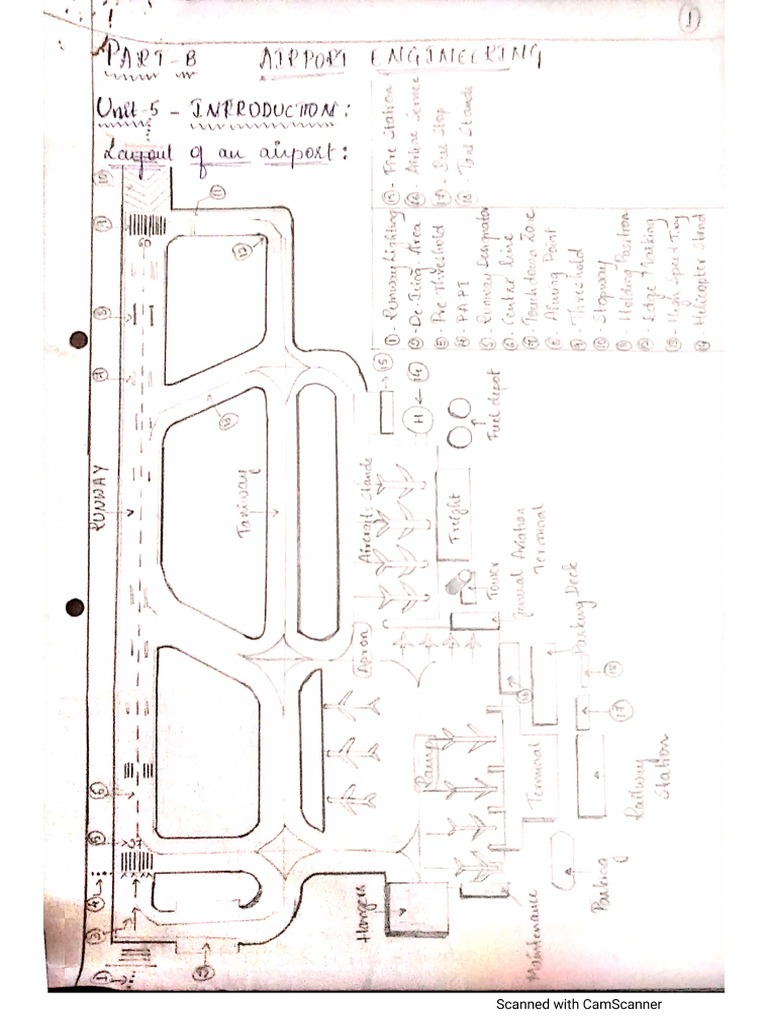 1
PART-B AIRPORT ENGINEERING
Unit-5 - INTRODUCTION:
Layout of an airport:
⑮ - Fire Station
⑯ - Airline Service
⑰ - Bus Stop
⑱ - Taxi Stands
① - Runway Lighting
② - De-Icing Area
③ - Pre Threshold
④ - PAPI
⑤ - Runway Designator
⑥ - Centre line
⑦ - Touchdown Zone
⑧ - Aiming Point
⑨ - Threshold
⑩ - Stopway
⑪ - Holding Position
⑫ - Edge Marking
⑬ - High Speed Txy
⑭ - Helicopter Stand
RUNWAY
Taxiway
Aircraft Stands
Apron
Ramp
Hangers
Maintenance
Parking
Terminal
Railway
Station
Parking Deck
General Aviation
Terminal
Tower
Freight
Fuel depot
H
①
②
③
④
⑤
⑥
⑦
⑧
⑨
⑩
⑪
⑫
⑬
⑭
⑮
⑯
⑰
⑱
Scanned with CamScanner